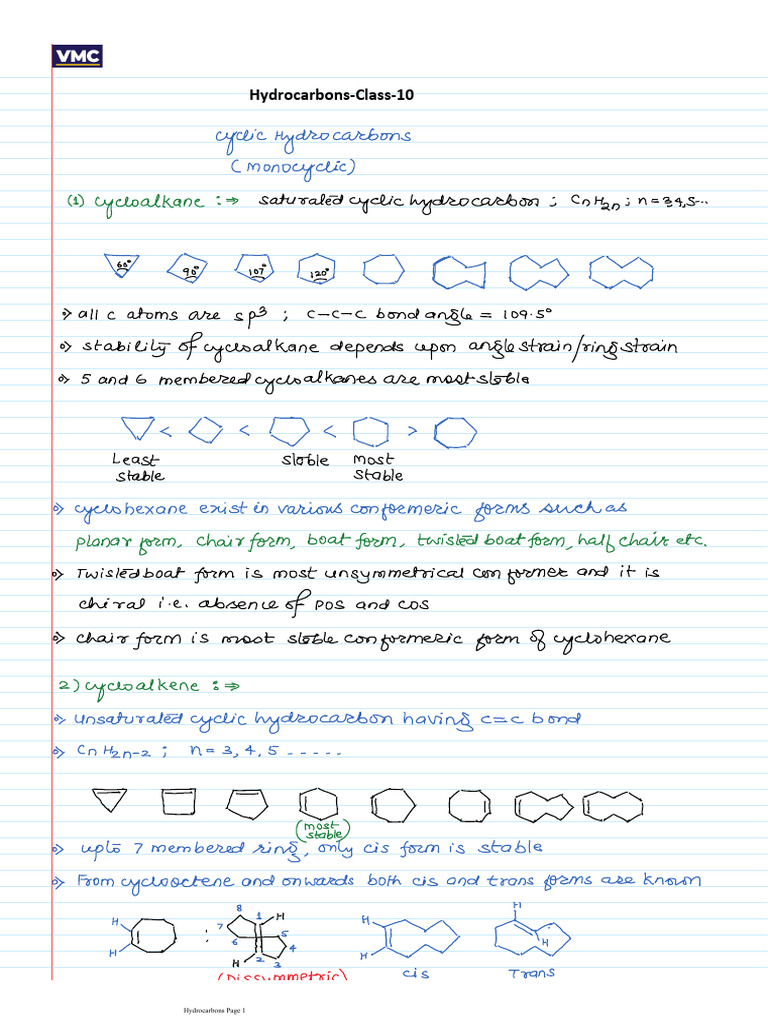 VMC
Hydrocarbons-Class-10
Cyclic Hydrocarbons
(Monocyclic)
(1) Cycloalkane :⇒ saturated cyclic hydrocarbon ; CnH2n ; n = 3,4,5...
60° 90° 107° 120°
all C atoms are sp3 ; C-C-C bond angle = 109.5°
stability of cycloalkane depends upon angle strain/ring strain
5 and 6 membered cycloalkanes are most stable
< < < >
Least stable stable most stable
cyclohexane exist in various conformeric forms such as
planar form, chair form, boat form, twisted boat form, half chair etc.
Twisted boat form is most unsymmetrical conformer and it is
chiral i.e. absence of POS and COS
chair form is most stable conformeric form of cyclohexane
2) cycloalkene :⇒
unsaturated cyclic hydrocarbon having C=C bond
CnH2n-2 ; n = 3, 4, 5 ......
(most stable)
upto 7 membered ring, only cis form is stable
From cyclooctene and onwards both cis and trans forms are known
H H ; 8 1 H 7 6 5 4 H 2 3 H H H H
cis Trans
(Dissymmetric)
Hydrocarbons Page 1